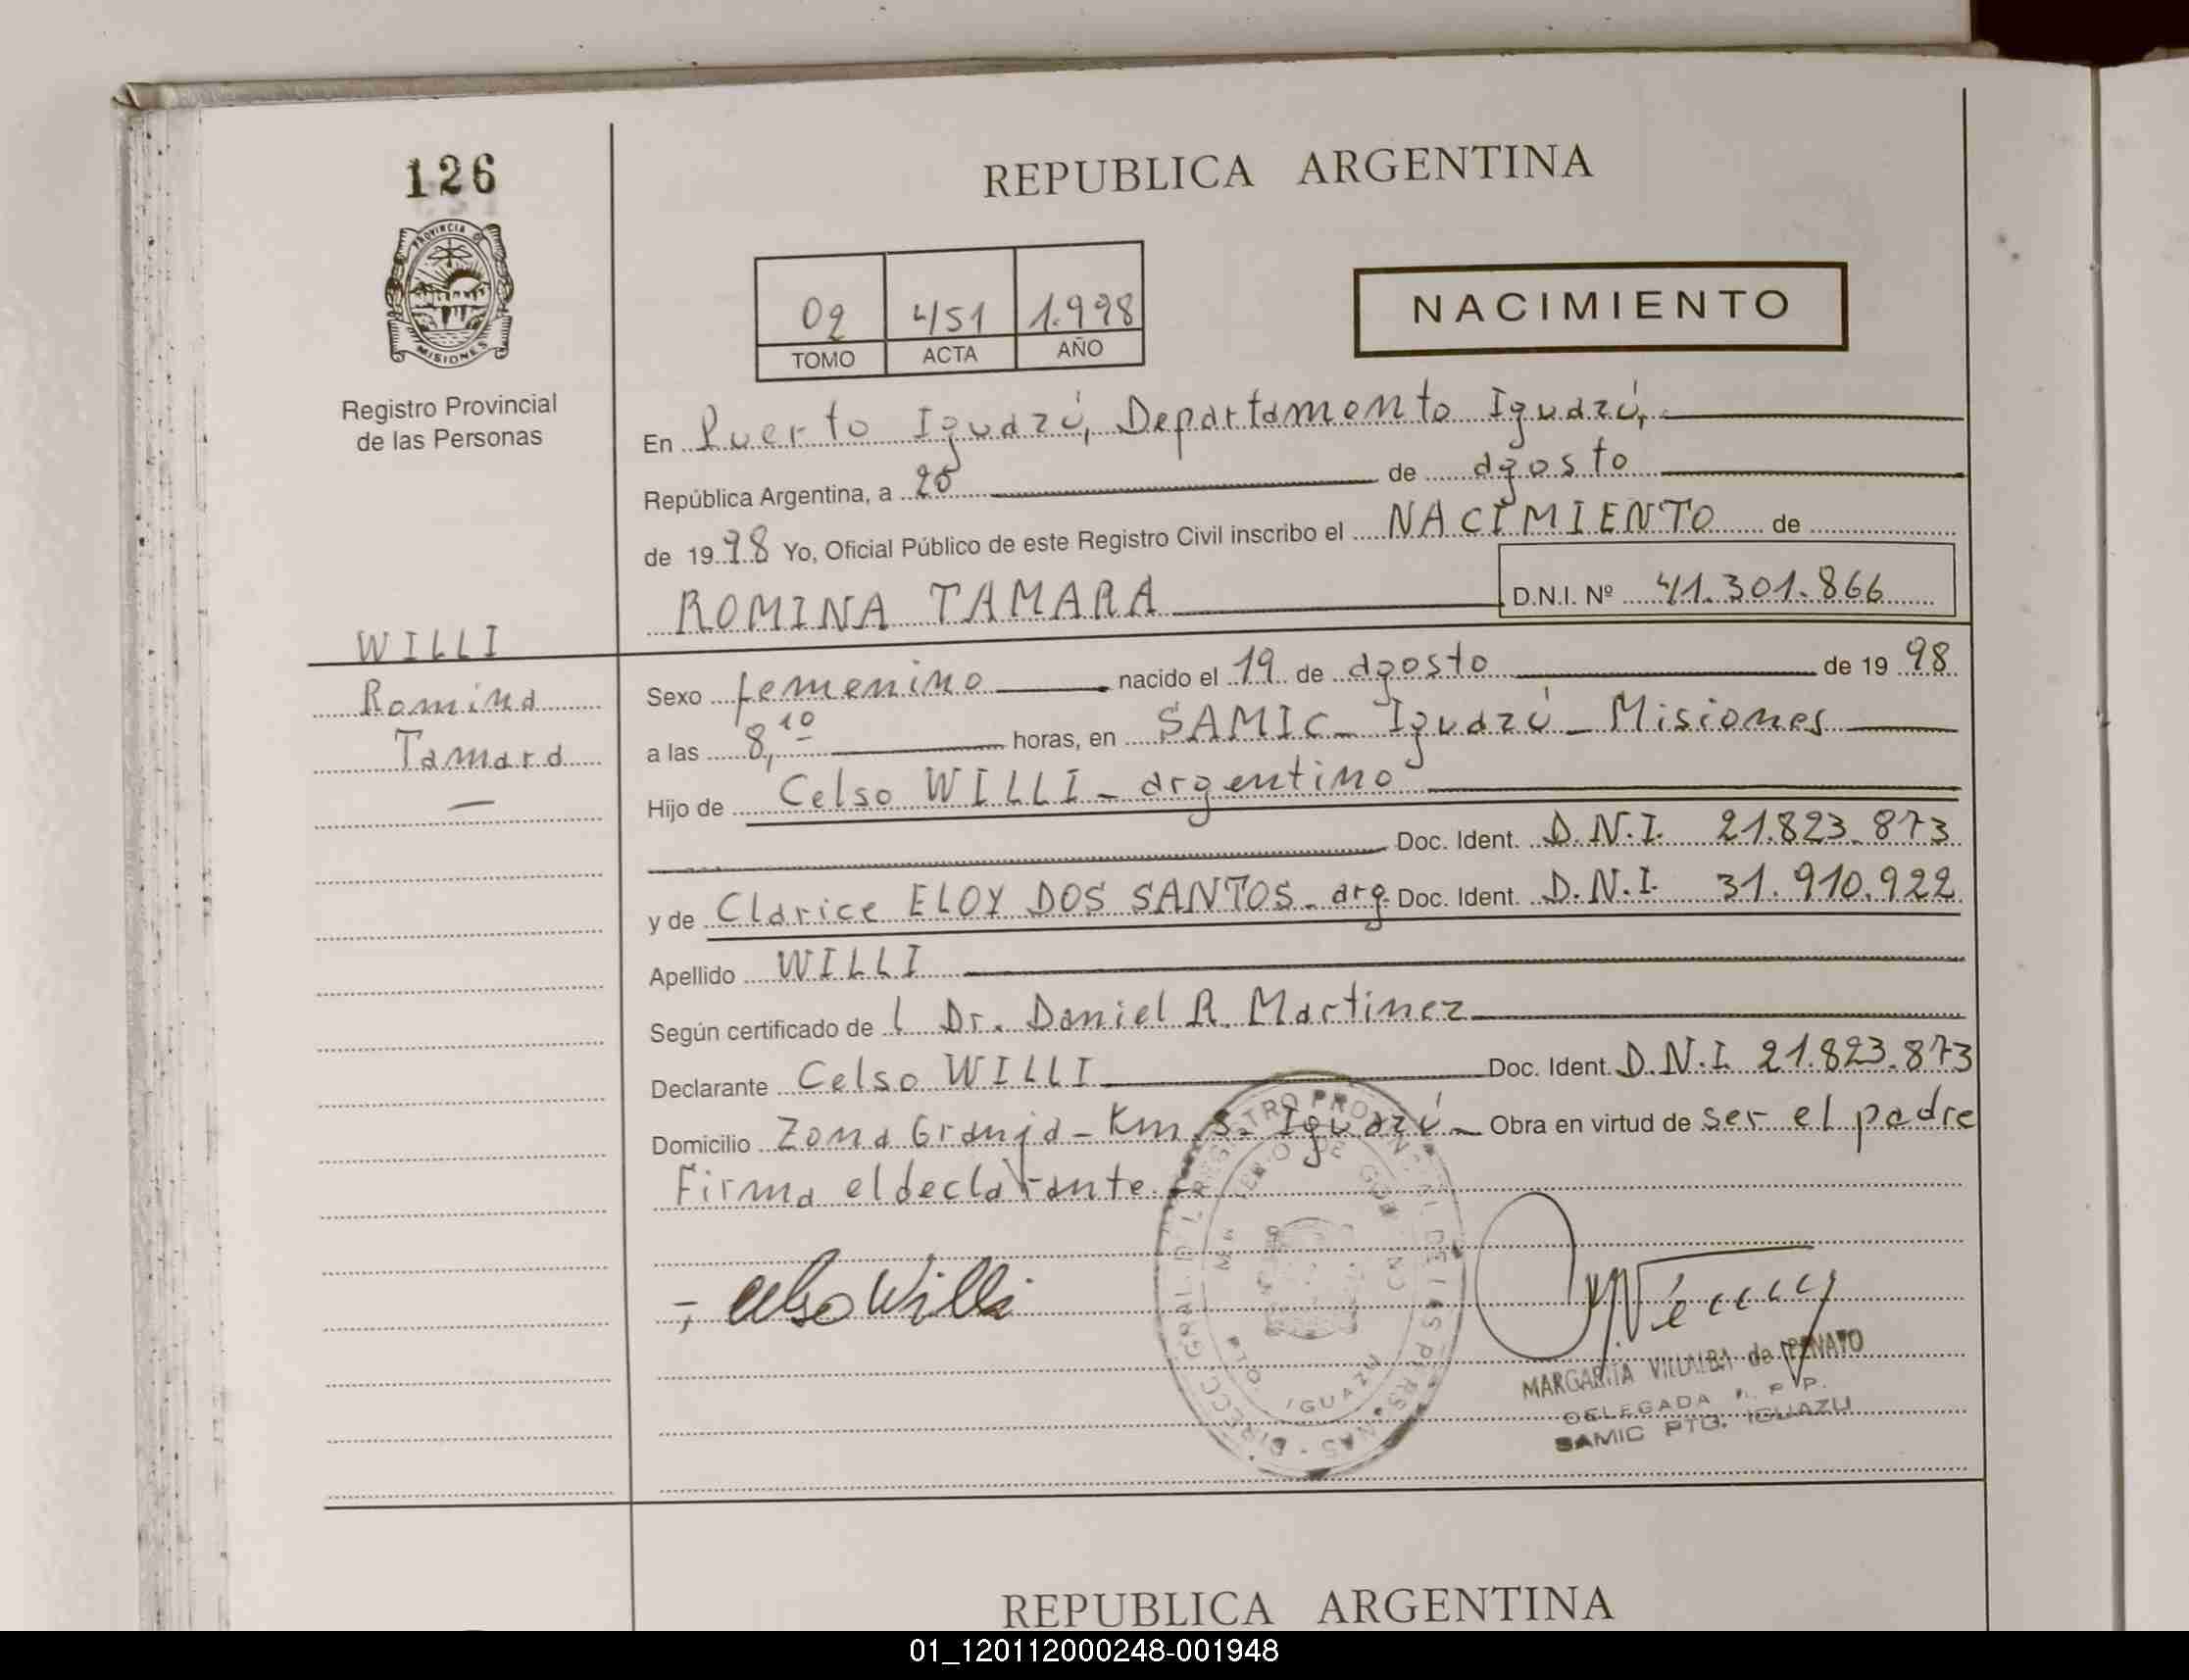 126
REPUBLICA ARGENTINA
PROVINCIA DE
MISIONES
Registro Provincial
de las Personas
02 451 1.998
TOMO ACTA AÑO
NACIMIENTO
En Puerto Iguazú, Departamento Iguazú,
República Argentina, a 25 de agosto
de 1998 Yo, Oficial Público de este Registro Civil inscribo el NACIMIENTO de
ROMINA TAMARA D.N.I. Nº 41.301.866
WILLI
Romina
Tamara
—
Sexo femenino nacido el 19 de agosto de 19 98
a las 8,10 horas, en SAMIC - Iguazú - Misiones
Hijo de Celso WILLI - argentino
Doc. Ident. D.N.I. 21.823.873
y de Clarice ELOY DOS SANTOS - arg. Doc. Ident. D.N.I. 31.910.922
Apellido WILLI
Según certificado de l Dr. Daniel R. Martinez
Declarante Celso WILLI Doc. Ident. D.N.I. 21.823.873
Domicilio Zona Granja - Km. 5 - Iguazú - Obra en virtud de ser el padre
Firma el declarante.-
Celso Willi
MARGARITA VILLALBA de PENAYO
DELEGADA R. P. P.
SAMIC PTO. IGUAZU
IGUAZU
REPUBLICA ARGENTINA
01_120112000248-001948